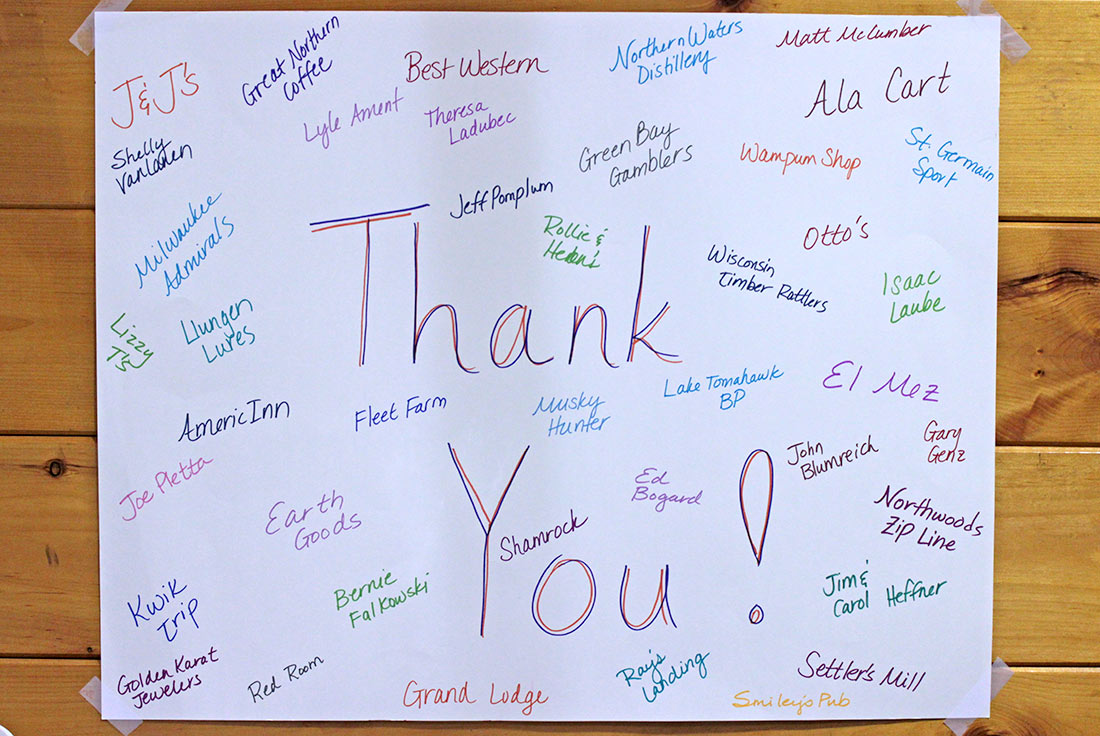 J&J's
Great Northern
Coffee
Best Western
Northern Waters
Distillery
Matt McLumber
Lyle Ament
Theresa
Ladubec
Ala Cart
Shelly
VanLanen
Green Bay
Gamblers
Wampum Shop
St. Germain
Sport
Jeff Pomplum
Milwaukee
Admirals
Rollie &
Helen's
Otto's
Wisconsin
Timber Rattlers
Isaac
Laube
Thank
Lizzy
T's
Llungen
Lures
AmericInn
Fleet Farm
Musky
Hunter
Lake Tomahawk
BP
El Mez
John
Blumreich
Gary
Genz
Joe Pletta
Earth
Goods
Ed
Bogard
Northwoods
Zip Line
You!
Shamrock
Kwik
Trip
Bernie
Falkowski
Jim &
Carol Heffner
Golden Karat
Jewelers
Red Room
Grand Lodge
Ray's
Landing
Settler's Mill
Smiley's Pub